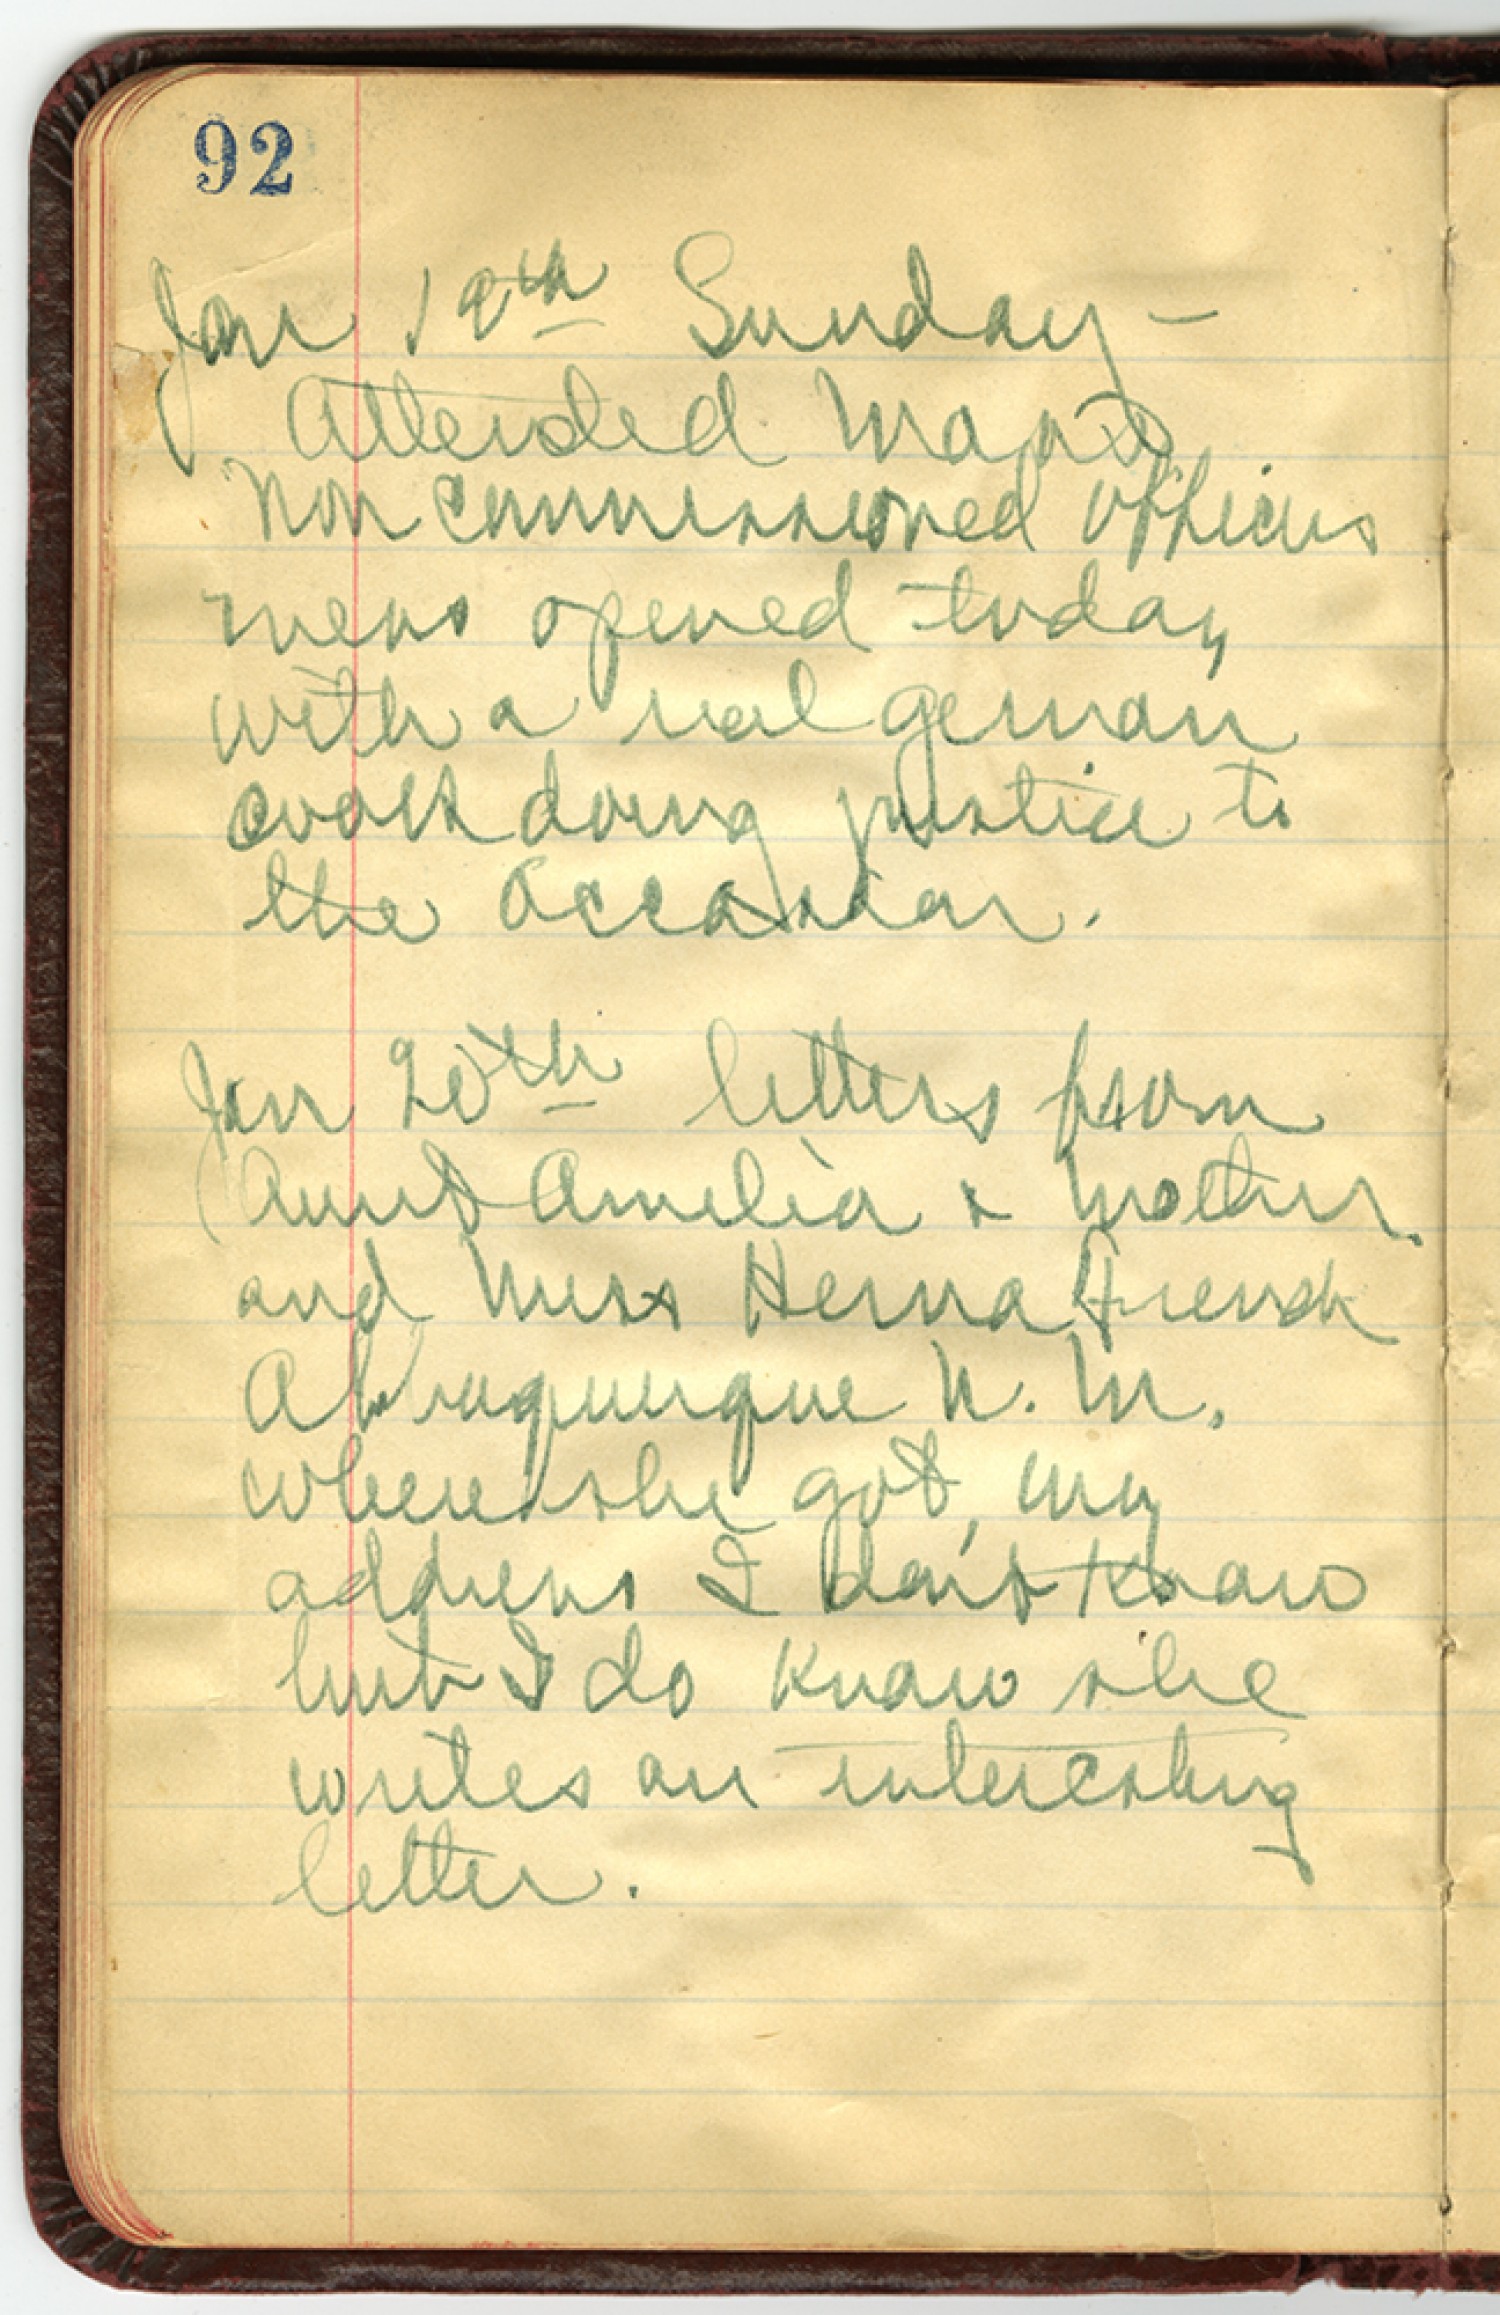 92
Jan 19th Sunday –
Attended Mass
Non commissioned officers
mess opened today
with a real german
cook doing justice to
the occasion.
Jan 20th letters from
Aunt Amelia & Mother.
and Miss Herna French
Albuquerque N. M.
where she got my
address I don't know
but I do know she
writes an interesting
letter.